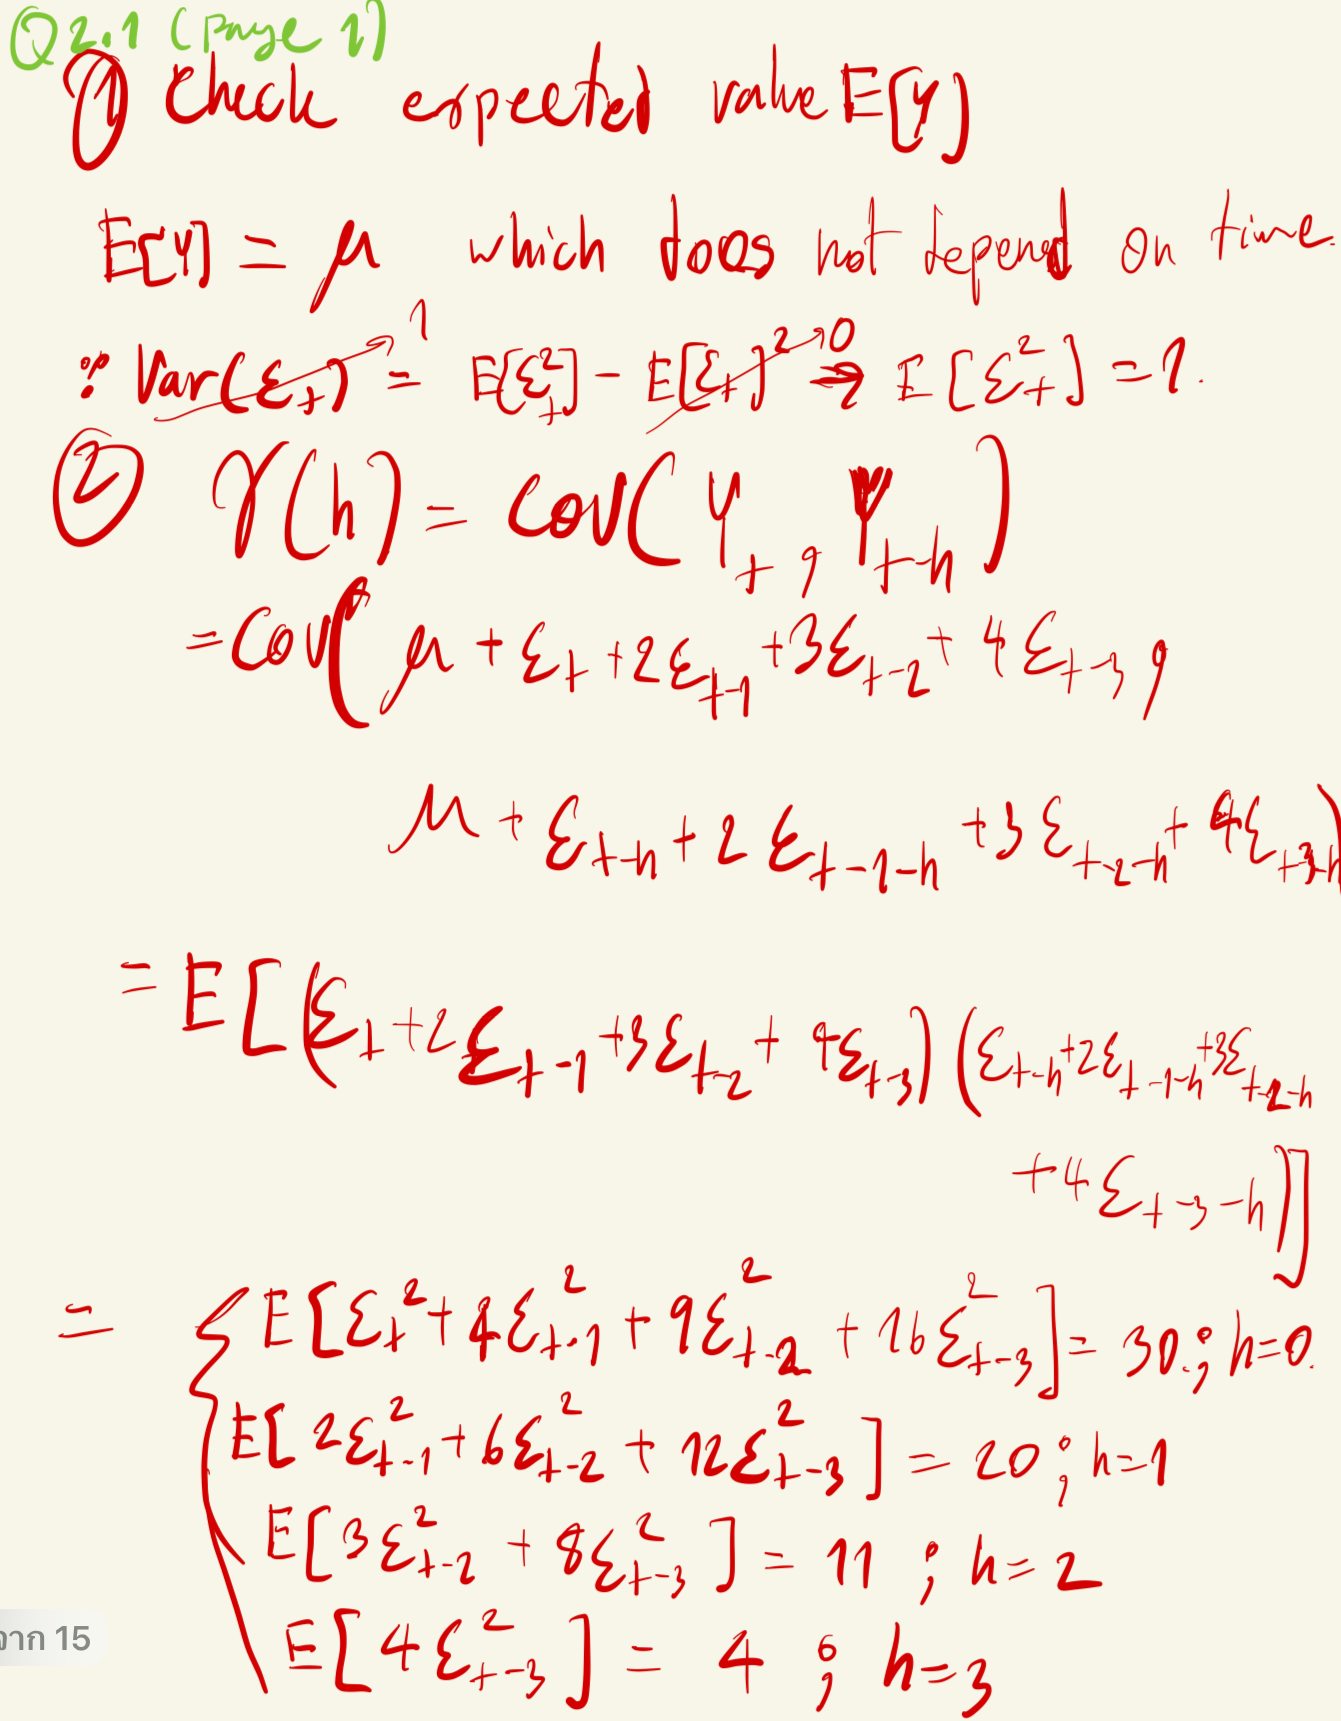 Q2.1 (Page 1)
① Check expected value E[Y]
E[Y] = μ which does not depend on time.
∵ Var(ε_t)→1 = E[ε_t²] - E[ε_t]²→0 ⇒ E[ε_t²] = 1.
② γ(h) = Cov(Y_t, Y_{t-h})
= Cov(μ + ε_t + 2ε_{t-1} + 3ε_{t-2} + 4ε_{t-3},
μ + ε_{t-h} + 2ε_{t-1-h} + 3ε_{t-2-h} + 4ε_{t-3-h})
= E[(ε_t + 2ε_{t-1} + 3ε_{t-2} + 4ε_{t-3})(ε_{t-h} + 2ε_{t-1-h} + 3ε_{t-2-h}
+ 4ε_{t-3-h})]
= { E[ε_t² + 4ε_{t-1}² + 9ε_{t-2}² + 16ε_{t-3}²] = 30.; h=0.
E[2ε_{t-1}² + 6ε_{t-2}² + 12ε_{t-3}²] = 20; h=1
E[3ε_{t-2}² + 8ε_{t-3}²] = 11; h=2
E[4ε_{t-3}²] = 4; h=3
จาก 15